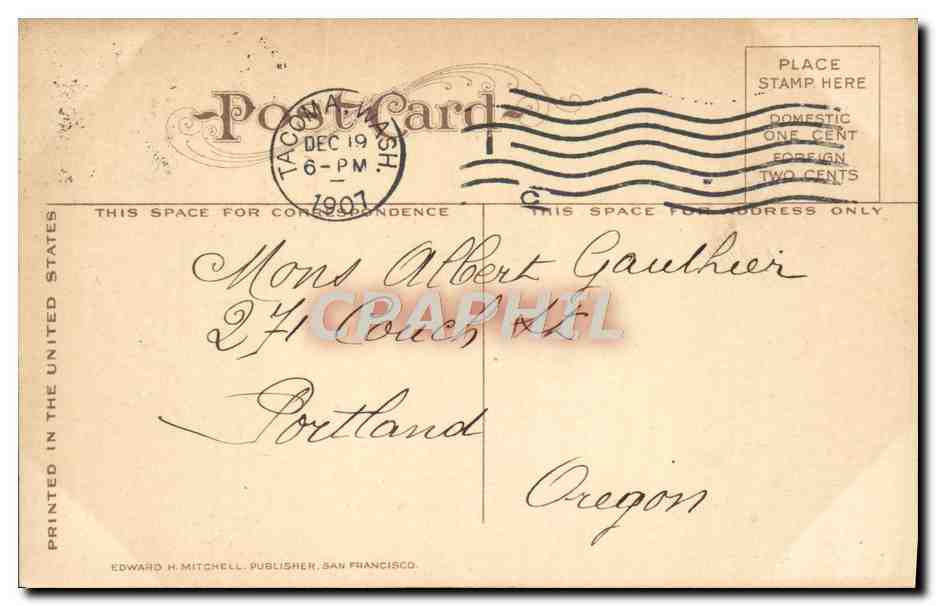 Post Card
PLACE
STAMP HERE
DOMESTIC
ONE CENT
FOREIGN
TWO CENTS
TACOMA, WASH.
DEC 19
6-PM
1907
C
THIS SPACE FOR CORRESPONDENCE
THIS SPACE FOR ADDRESS ONLY
PRINTED IN THE UNITED STATES
Mons Albert Gauthier
271 Couch St
Portland
Oregon
CPAPHIL
EDWARD H. MITCHELL, PUBLISHER, SAN FRANCISCO.